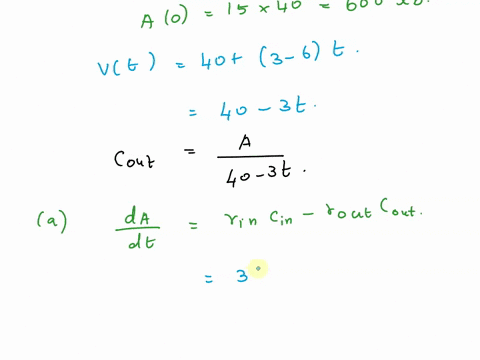 A(0) = 15 × 40 = 600
V(t) = 40 + (3-6) t.
= 40 - 3t.
Cout = A / 40-3t.
(a) dA/dt = rin Cin - rout Cout.
= 3